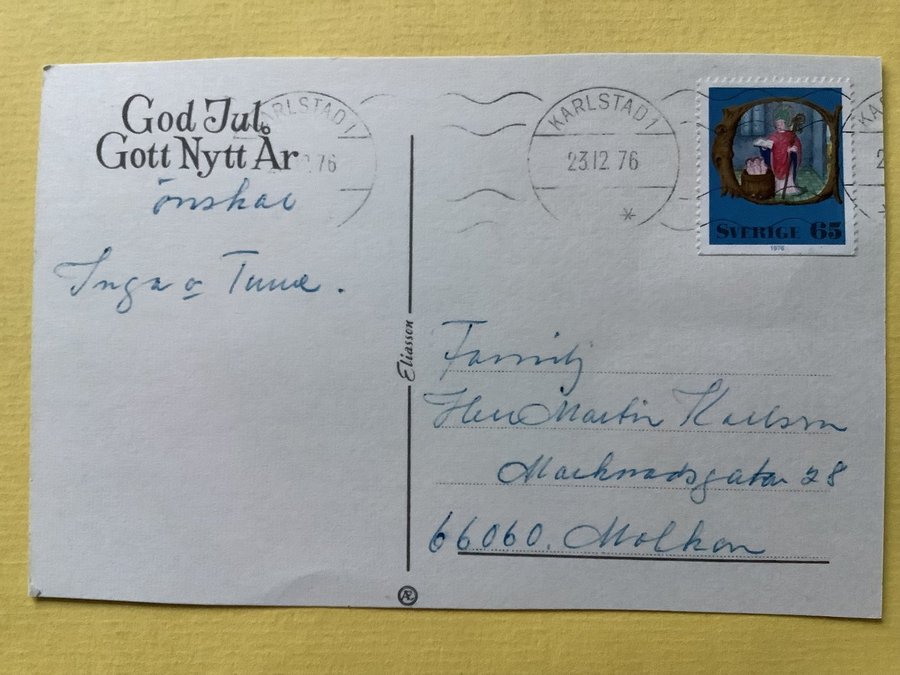 God Jul
Gott Nytt År
önskar
Inga o Tune.
Eliasson
Æ
KARLSTAD 1
76
KARLSTAD 1
23.12.76
*
KA
2
SVERIGE 65
1976
Familj
Herr Martin Karlsson
Marknadsgatan 28
66060. Molkom